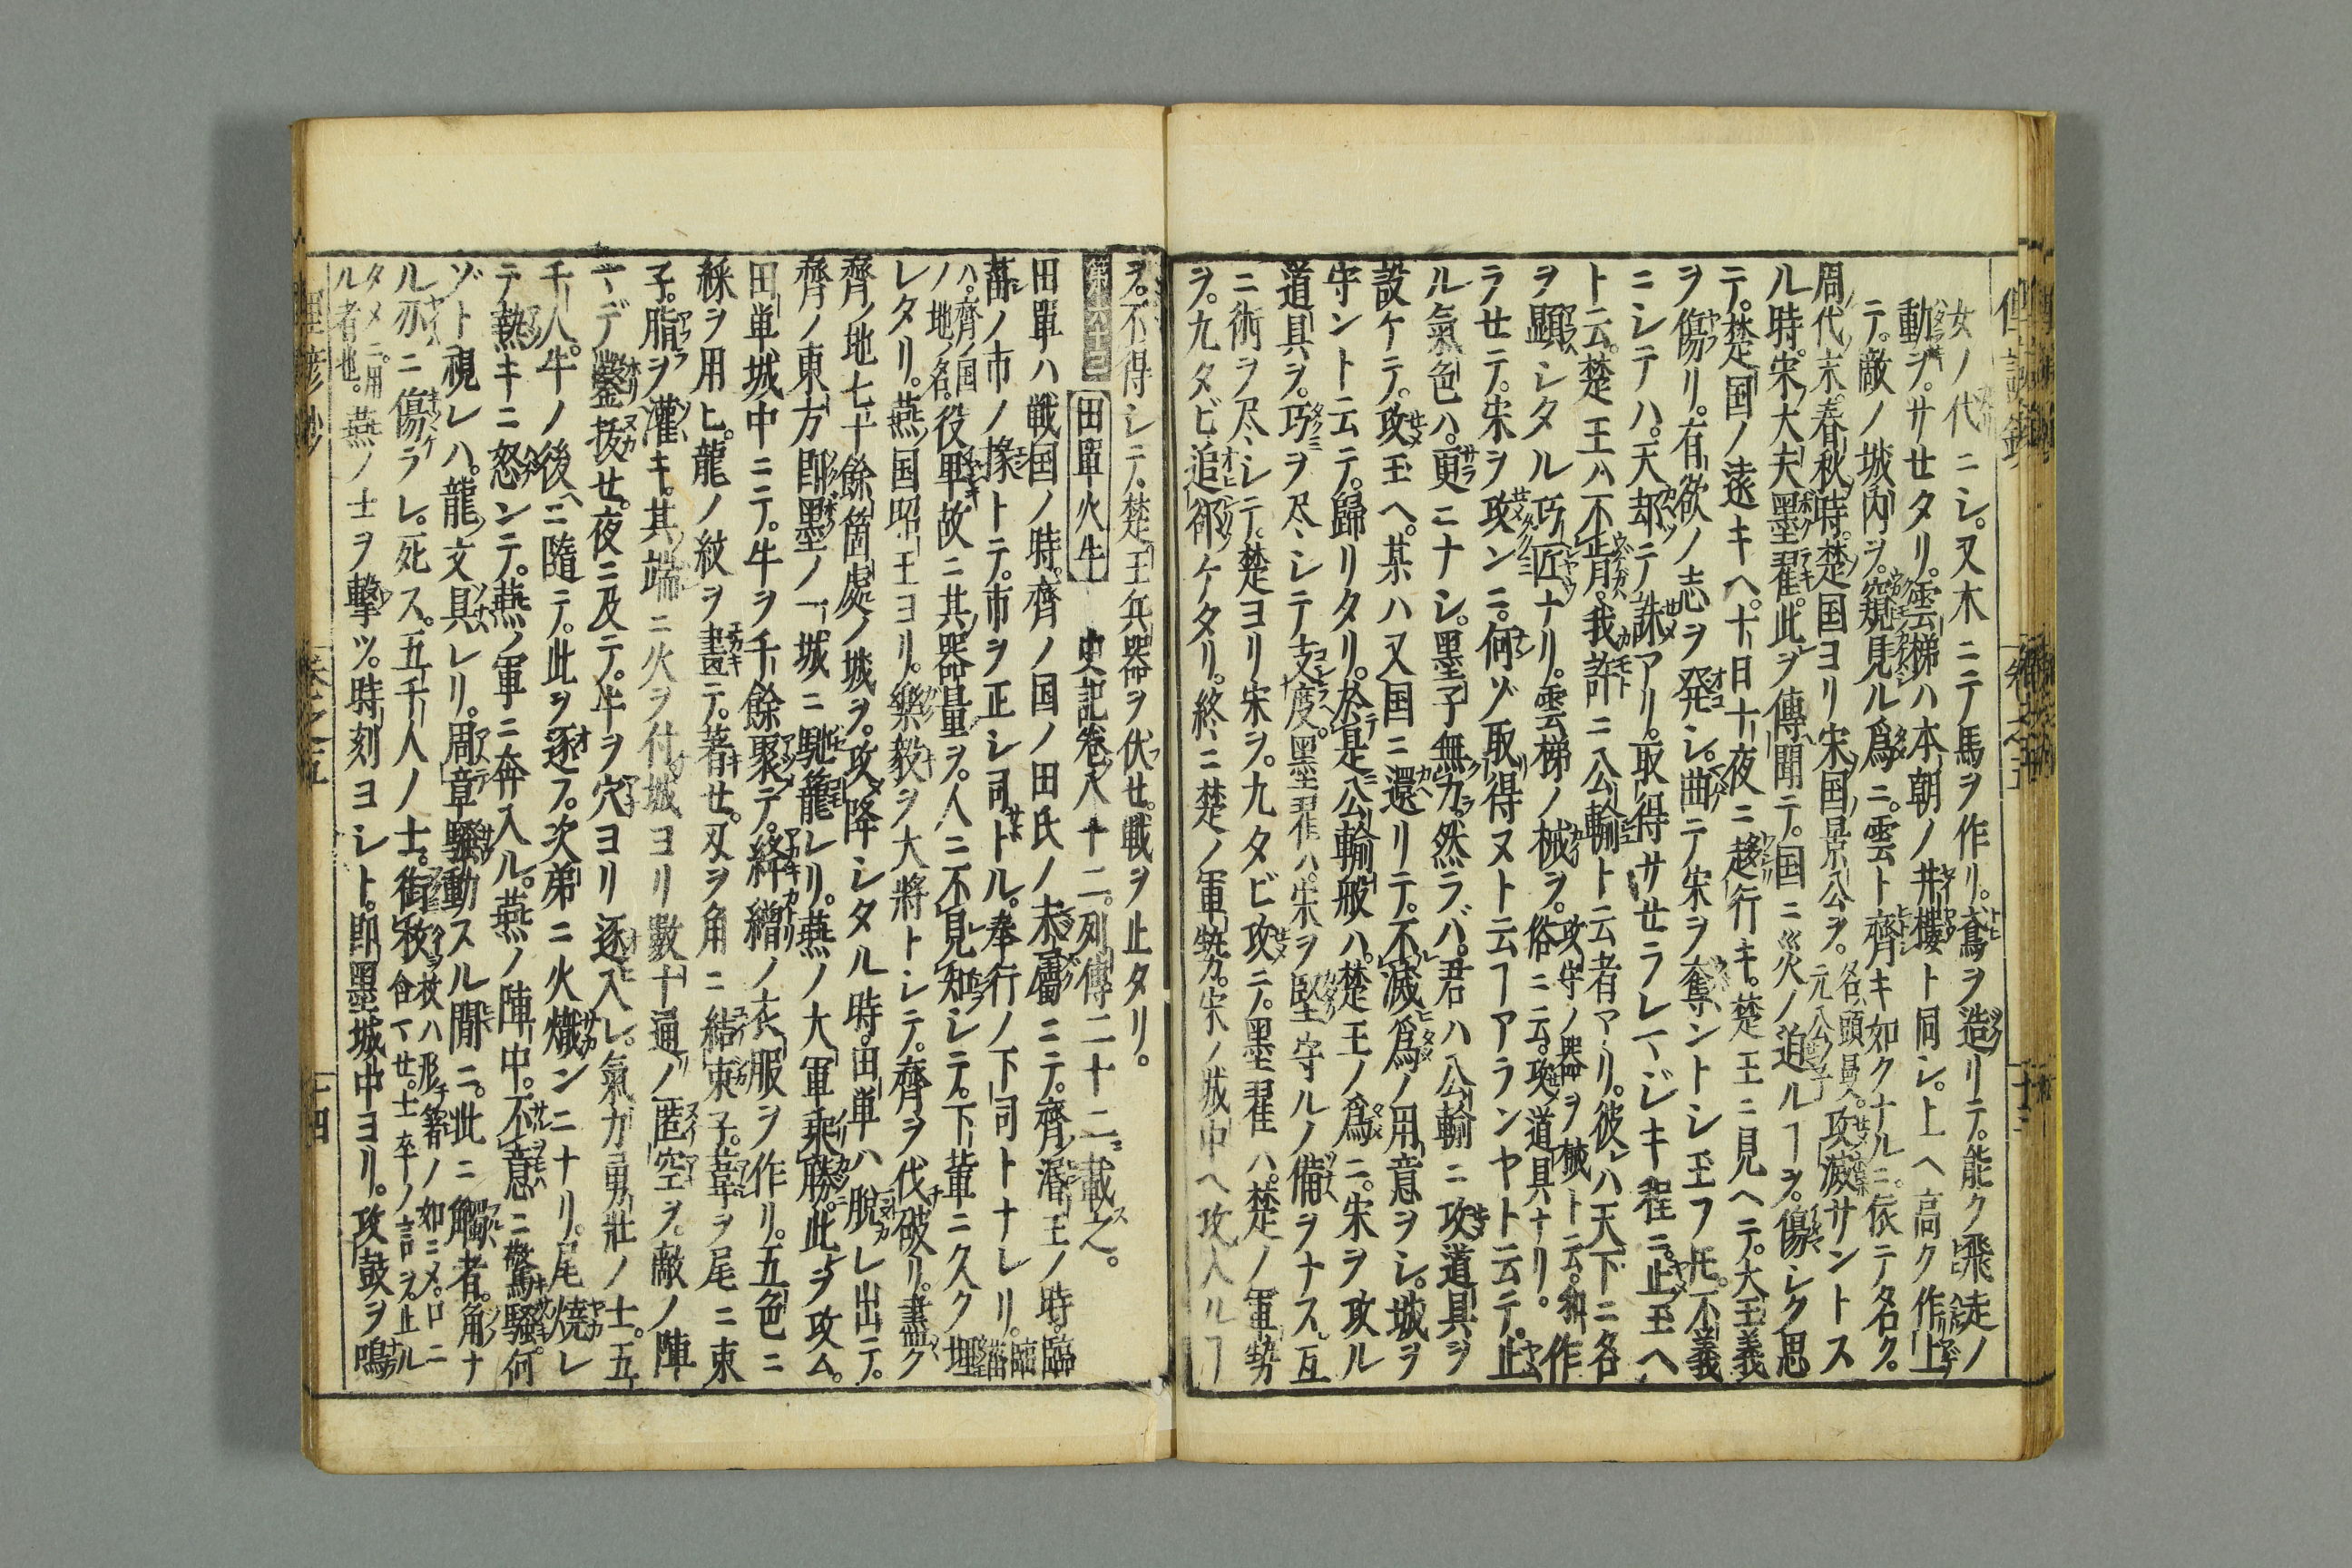 女ノ代ニシ。又木ニテ馬ヲ作リ。鳶ヲ造リテ。能ク飛走ノ
動ヲ。サセタリ。雲梯ハ本朝ノ井樓ト同シ。上ヘ高ク作上
テ。敵ノ城内ヲ。窺見ル爲ニ。雲ト齊キ如クナルニ。依テ名ク。
周代末。春秋時。楚国ヨリ宋国景公ヲ。元公ノ子。各頭曼。攻滅サントス
ル時。宋ノ大夫墨翟。此ヲ傳聞テ。国ニ災ノ迫ルヿヲ。傷シク思
テ。楚国ノ遠キヘ。十日十夜ニ趍行キ。楚王ニ見ヘテ。大王義
ヲ傷リ。有欲ノ志ヲ発シ。曲テ宋ヲ奪ントシ玉フ𪜈。不義
ニシテハ。天却テ誅アリ。取得サセラレマジキ程ニ。止玉ヘ
ト云。楚王ハ不肯。我許ニ公輸ト云者アリ。彼ハ天下ニ各
ヲ顕シタル巧匠ナリ。雲梯ノ械ヲ。攻守ノ器ヲ械ト云。俗ニ云。攻道具ナリ。作
ラセテ。宋ヲ攻ンニ。何ゾ取得ヌト云ヿアランヤト云テ。止
ル氣色ハ。更ニナシ。墨子無力。然ラバ。君ハ公輸ニ攻道具ヲ
設ケテ。攻玉ヘ。某ハ又国ニ還リテ。不滅爲ノ用意ヲシ。城ヲ
守ント云テ。歸リタリ。於是公輸般ハ。楚王ノ爲ニ。宋ヲ攻ル
道具ヲ。巧ヲ尽シテ支度。墨翟ハ。宋ヲ堅守ルノ備ヲナス。互
ニ術ヲ尽シテ。楚ヨリ宋ヲ。九タビ攻ニテ。墨翟ハ。楚ノ軍勢
ヲ。九タビ追郤ケタリ。終ニ楚ノ軍勢。宋ノ城中ヘ攻入ルヿ
ヲ。不得シニテ。楚王兵器ヲ伏せ。戦ヲ止タリ。
田單火牛 史記卷八十二。列傳二十二載之。
田單ハ戦国ノ時。齊ノ国ノ田氏ノ末屬ニテ。齊ノ湣王ノ時。臨
菑ノ市ノ掾トテ。市ヲ正シ司トル。奉行ノ下司トナレリ。臨菑
ハ。齊ノ国ノ地ノ名。役卑故ニ其器量ヲ。人ニ不見知シテ。下輩ニ久ク埋
レタリ。燕ノ国昭王ヨリ。樂毅ヲ大將トシテ。齊ヲ伐破リ。盡ク
齊ノ地七十餘箇處ノ城ヲ。攻降シタル時。田単ハ脱レ出テ。
齊ノ東方即墨ノ一城ニ馳籠レリ。燕ノ大軍乘勝。此ヲ攻ム。
田単城中ニテ。牛ヲ千餘聚テ。絳繒ノ衣服ヲ作リ。五色ニ
綵ヲ用ヒ。龍ノ紋ヲ畫テ。著せ。刄ヲ角ニ結束子。葦ヲ尾ニ束
子。脂ヲ灌キ。其端ニ火ヲ付。城ヨリ數十通ノ匿空ヲ。敵ノ陣
マデ鑿拔せ。夜ニ及テ。牛ヲ穴ヨリ逐入レ。氣力勇壯ノ士。五
千人。牛ノ後ニ隨テ。此ヲ逐フ。次第ニ火熾ンニナリ。尾焼レ
テ熱キニ怒ンテ。燕ノ軍ニ奔入ル。燕ノ陣中。不意ニ驚騒。何
ゾト視レハ。龍ノ文具レリ。周章騒動スル間ニ。此ニ觸者。角ナ
ル刃ニ傷ラレ。死ス。五千人ノ士。銜枚 枚ハ形箸ノ如ニメ。口ニ含マせ。士卒ノ言ヲ止ル
タメニ。用ル者也。燕ノ士ヲ撃ツ。時刻ヨシト。即墨城中ヨリ。攻鼓ヲ鳴
卷之五
十四